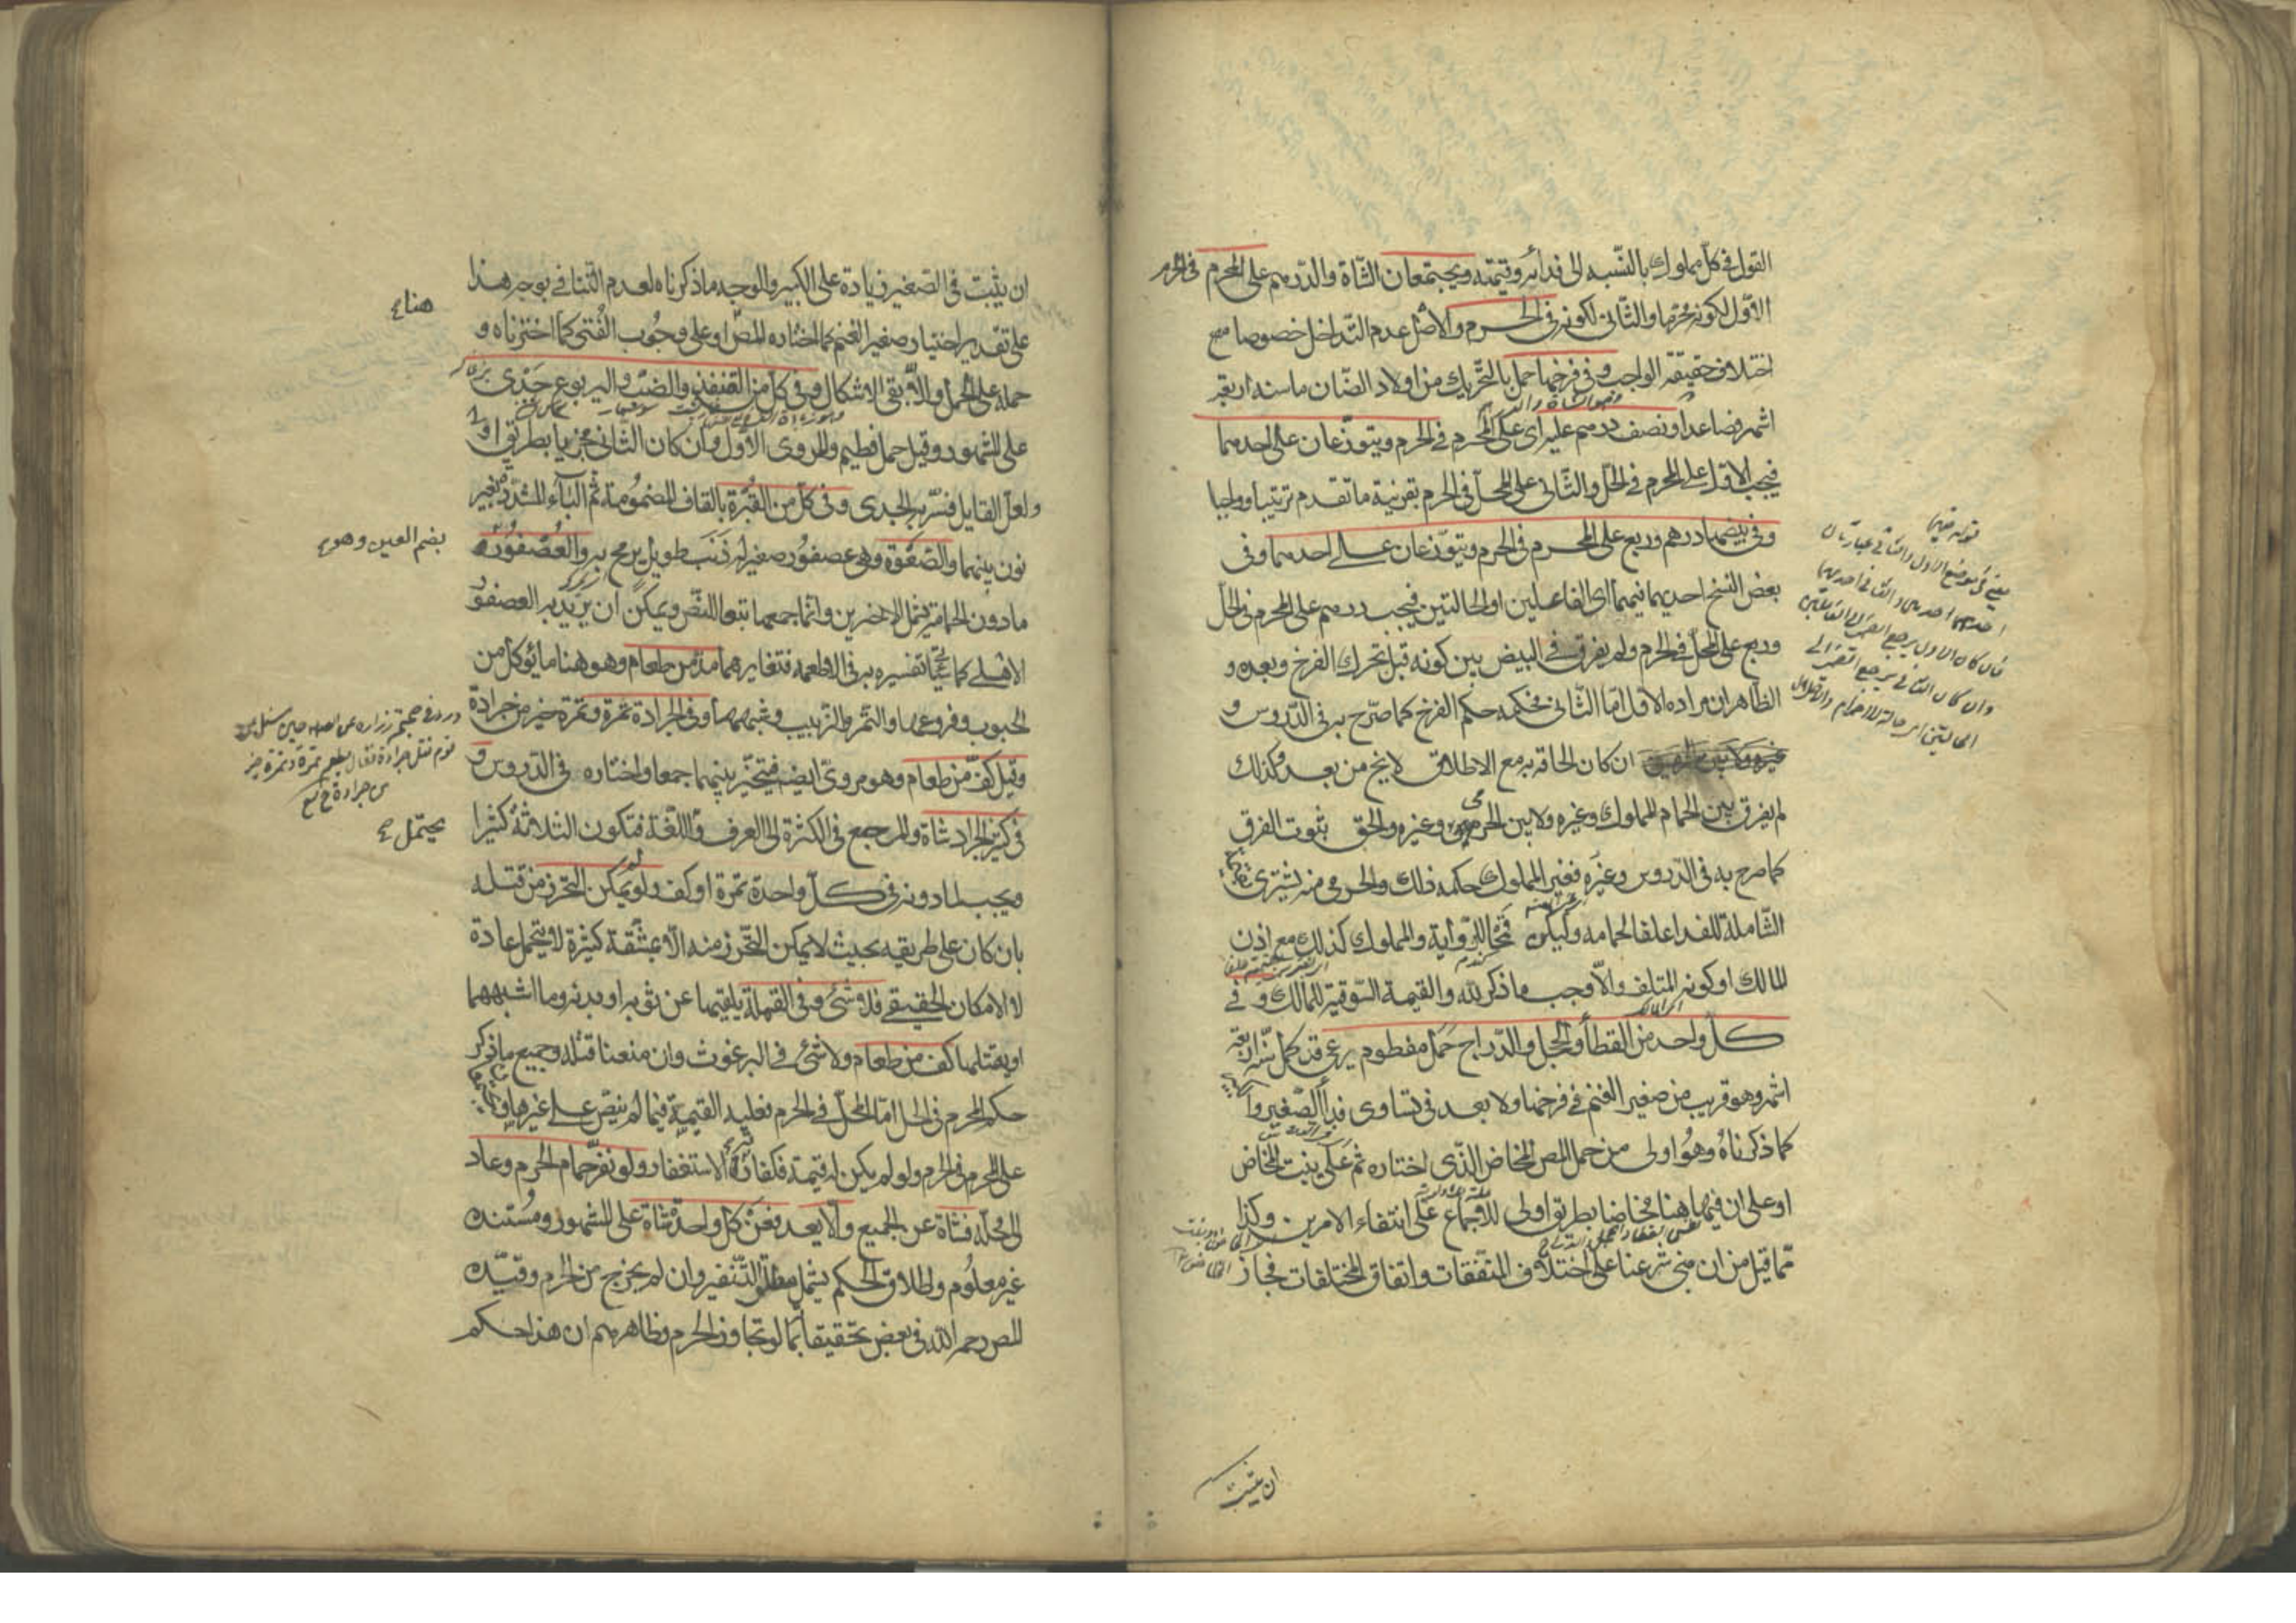 القول فى كل مملوك بالنسبه الى فدائه وقيمته ويجتمعان الشاة والدرهم على المحرم فى الحرم
الاول لكونه محرما والثانى لكونه فى الحرم والاصل عدم التداخل خصوصا مع
اختلاف حقيقة الواجب وفى فرخها حمل بالتحريك من اولاد الضان ماسنه اربعة
اشهر فصاعدا ونصف درهم عليه اى على المحرم فى الحرم ويتوزعان على احدهما
فيجب الاول على المحرم فى الحل والثانى على المحل فى الحرم بقرينة ما تقدم ترتيبا وواجبا
وفى بيضها درهم وربع على المحرم فى الحرم ويتوزعان على احدهما وفى
بعض النسخ احديهما فيهما اى الفاعلين او الحالتين فيجب درهم على المحرم فى الحل
وربع على المحل فى الحرم ولم يفرق فى البيض بين كونه قبل تحرك الفرخ وبعده و
الظاهر ان مراده الاول اما الثانى فحكمه حكم الفرخ كما صرح به فى الدروس و
ان كان الحاقه به مع الاطلاق لا يخ من بعد وكذلك
لم يفرق بين الحمام المملوك وغيره ولا بين الحرمى وغيره والحق ثبوت الفرق
كما صرح به فى الدروس وغيره فغير المملوك حكمه ذلك والحرمى منه يشترى بقيمته
الشاملة للفداء علفا لحمامه وليكن قمحا للرواية والمملوك كذلك مع اذن
المالك او كونه المتلف والا وجب ما ذكر لله والقيمة السوقية للمالك وفى
كل واحد من القطا والحجل والدراج حمل مفطوم رعى قد كمل سنه اربعة
اشهر وهو قريب من صغير الغنم فى فرخها ولا بعد فى تساوى فداء الصغير والكبير
كما ذكرناه وهو اولى من حمل المص المخاض الذى اختاره ثم على بنت المخاض
او على ان فيها هنا مخاضا بطريق اولى للاجماع على انتفاء الامرين وكذا
مما قيل من ان مبنى شرعنا على اختلاف المتفقات واتفاق المختلفات فجاز
قوله فيهما
ان يثبت
ان يثبت فى الصغير زيادة على الكبير والوجه ما ذكرناه لعدم التنافى بوجه هذا
على تقدير اختيار صغير الغنم كما اختاره المص او على وجوب الفتى كما اخترناه و
حمله على الحمل والا بقى الاشكال وفى كل من القنفذ والضب واليربوع جدى
على المشهور وقيل حمل فطيم والمروى الاول وان كان الثانى مجزيا بطريق اولى
ولعل القايل فسر به الجدى وفى كل من القبرة بالقاف المضمومة ثم الباء المشددة بغير
نون بينهما والصعوة وهى عصفور صغير له ذنب طويل يرمح به والعصفور
ما دون الحمامة يشمل الاخيرين وانما جمعهما تبعا للنص ويمكن ان يريد به العصفور
الاهلى كما سيجئ تفسيره به فى الاطعمه فتغايرهما مد من طعام وهو هنا ما يؤكل من
الحبوب وفروعها والتمر والزبيب وشبههما وفى الجرادة تمرة وتمرة خير من جرادة
وقيل كف من طعام وهو مروى ايضا فيتخير بينهما جمعا واختاره فى الدروس و
فى كثير الجراد شاة والمرجع فى الكثرة الى العرف واللغة فتكون الثلاثة كثيرا
ويجب لما دونه فى كل واحدة تمرة او كف ولو لم يمكن التحرز من قتله
بان كان على طريقه بحيث لا يمكن التحرز منه الا بمشقة كثيرة لا يتحمل عادة
لا الامكان الحقيقى فلا شئ وفى القملة يلقيها عن ثوبه او بدنه وما اشبههما
او يقتلها كف من طعام ولا شئ فى البرغوث وان منعنا قتله وجميع ما ذكر
حكم المحرم فى الحل اما المحل فى الحرم فعليه القيمة فيما لم ينص على غيرها
على المحرم فى الحرم ولو لم يكن له قيمة فكفارته الاستغفار ولو نفر حمام الحرم وعاد
الى محله فشاة عن الجميع والا يعد فعن كل واحدة شاة على المشهور ومستنده
غير معلوم واطلاق الحكم يشمل مطلق التنفير وان لم يخرج من الحرم وقيده
المص رحمه الله فى بعض تحقيقاته بما لو تجاوز الحرم وظاهرهم ان هذا حكم
هنا
بضم العين وهو
يحتمل